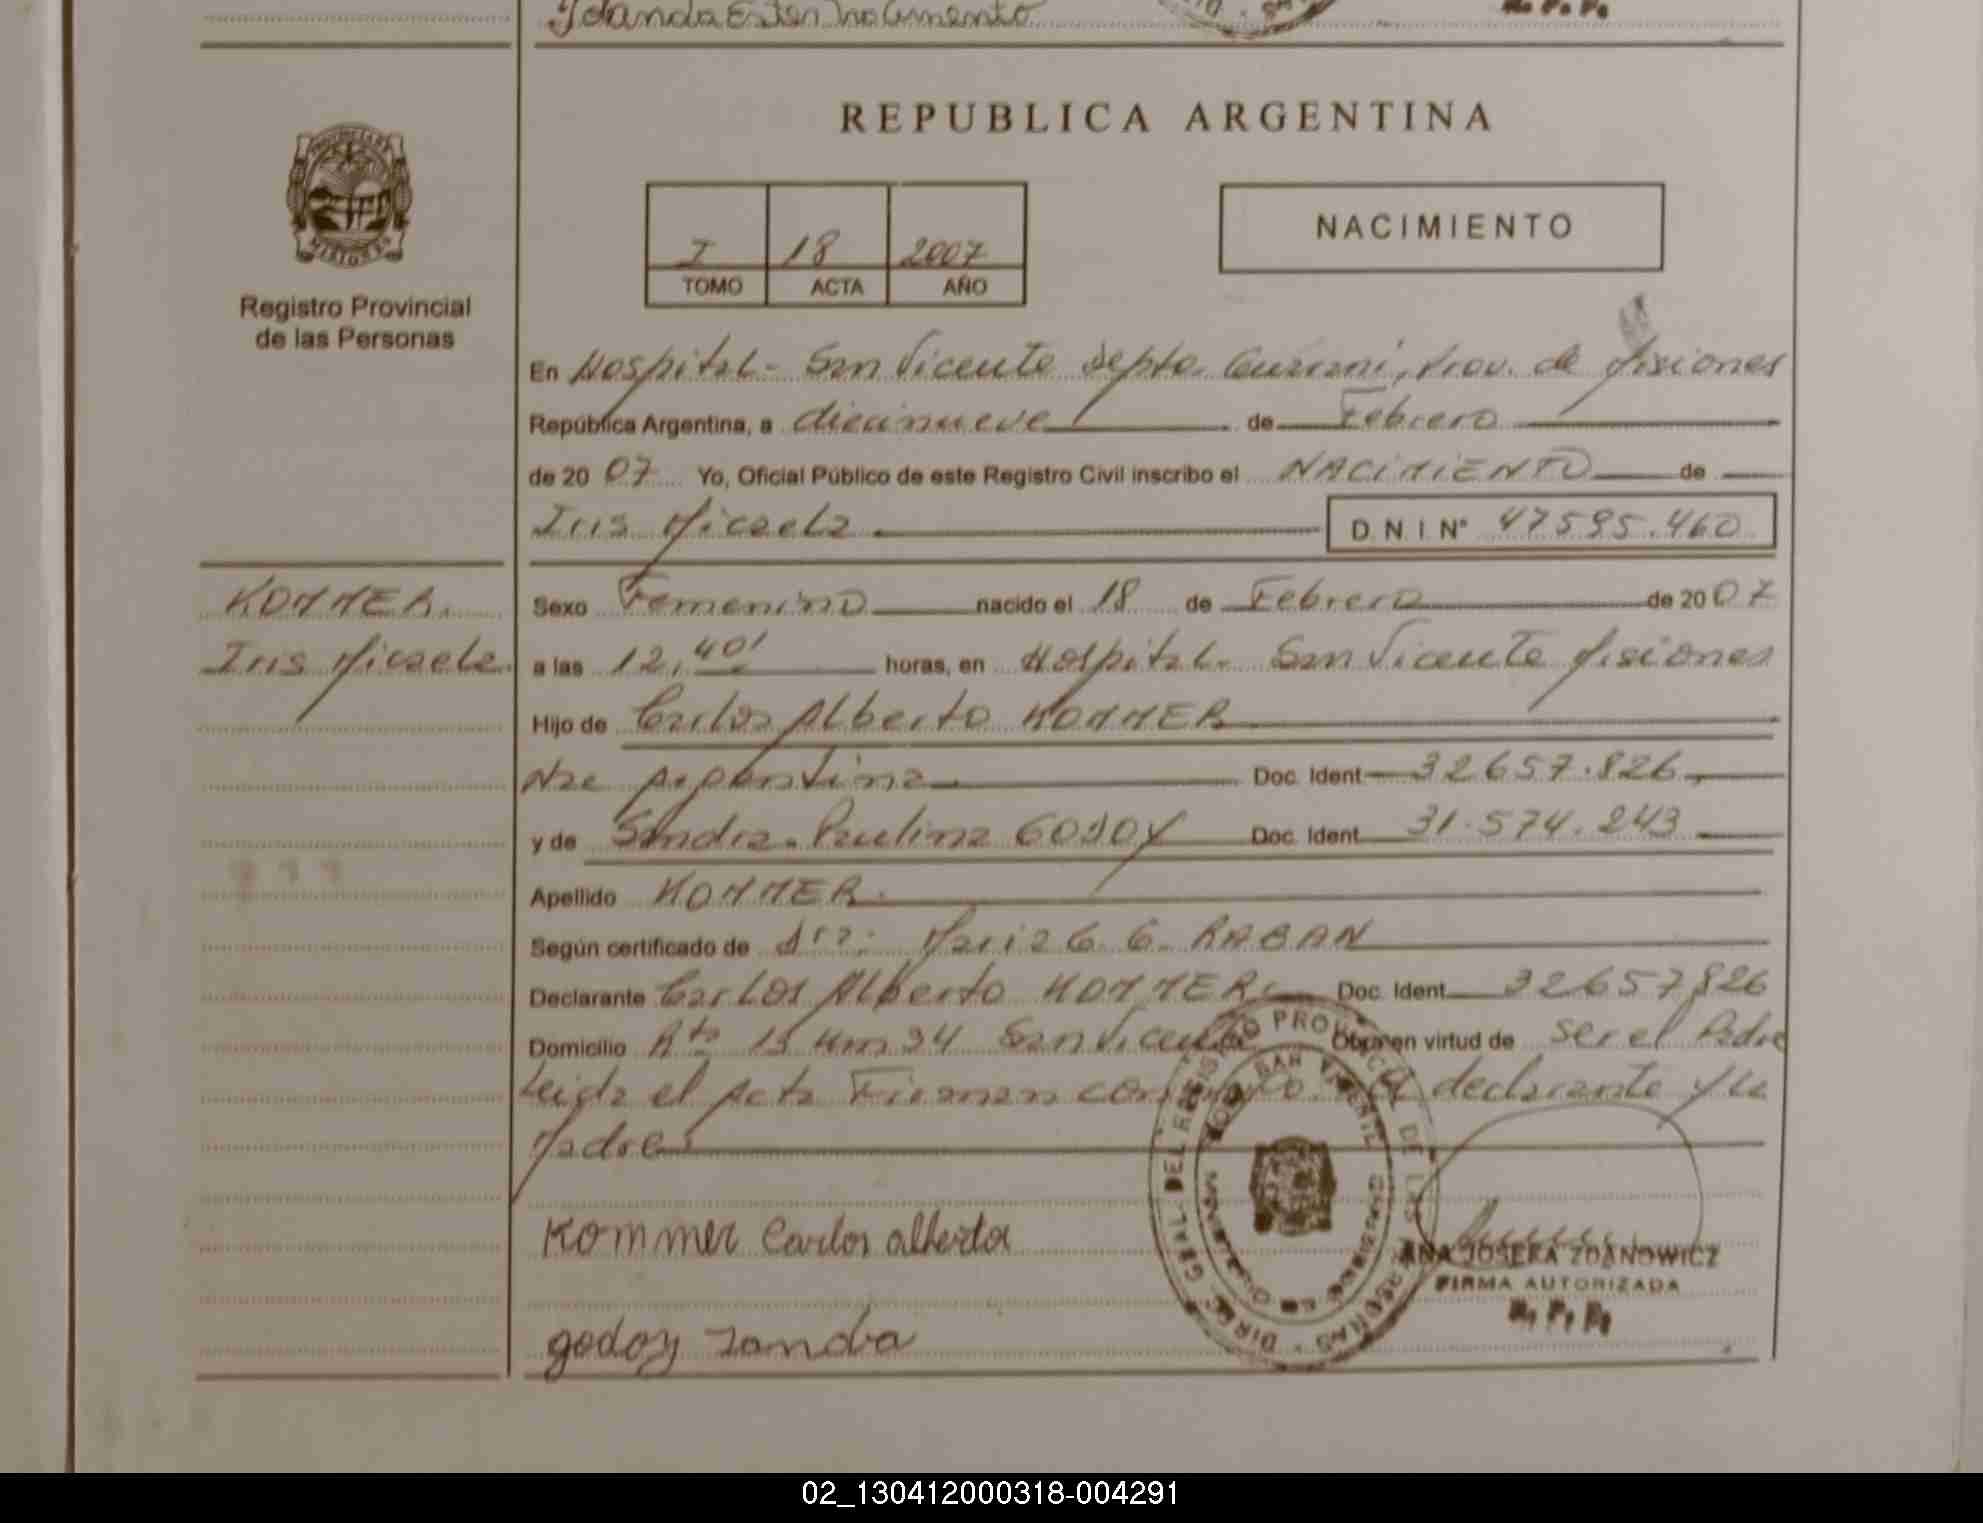 Yolanda Ester Nacimento
R. P. P.
REPUBLICA ARGENTINA
PROVINCIA DE
MISIONES
Registro Provincial
de las Personas
I 18 2007
TOMO ACTA AÑO
NACIMIENTO
En Hospital - San Vicente Depto. Guaraní, Prov. de Misiones
República Argentina, a diecinueve de Febrero
de 20 07 Yo, Oficial Público de este Registro Civil inscribo el NACIMIENTO de
Iris Micaela D. N. I. N° 47595.460
KOMMER.
Iris Micaela
Sexo Femenino nacido el 18 de Febrero de 20 07
a las 12,40' horas, en Hospital - San Vicente Misiones
Hijo de Carlos Alberto KOMMER
Nac Argentina Doc. Ident 32657.826
y de Sandra Paulina GODOY Doc. Ident. 31.574.243
Apellido KOMMER.
Según certificado de Dra. Maria G. G. RABAN
Declarante Carlos Alberto KOMMER Doc. Ident. 32657826
Domicilio Rta 13 Km 34 San Vicente Obra en virtud de ser el Padre
Leida el Acta Firman el declarante y la
Madre
Kommer Carlos alberto
godoy Sandra
DIREC. GRAL. DEL REGISTRO PROVINCIAL DE LAS PERSONAS
SAN VICENTE
ANA JOSEFA ZDANOWICZ
FIRMA AUTORIZADA
R. P. P.
02_130412000318-004291